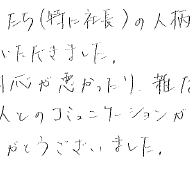 たち(特に社長)の人柄
いただきました。
対応が悪かったり、雑な
人とのコミュニケーションが
がとうございました。